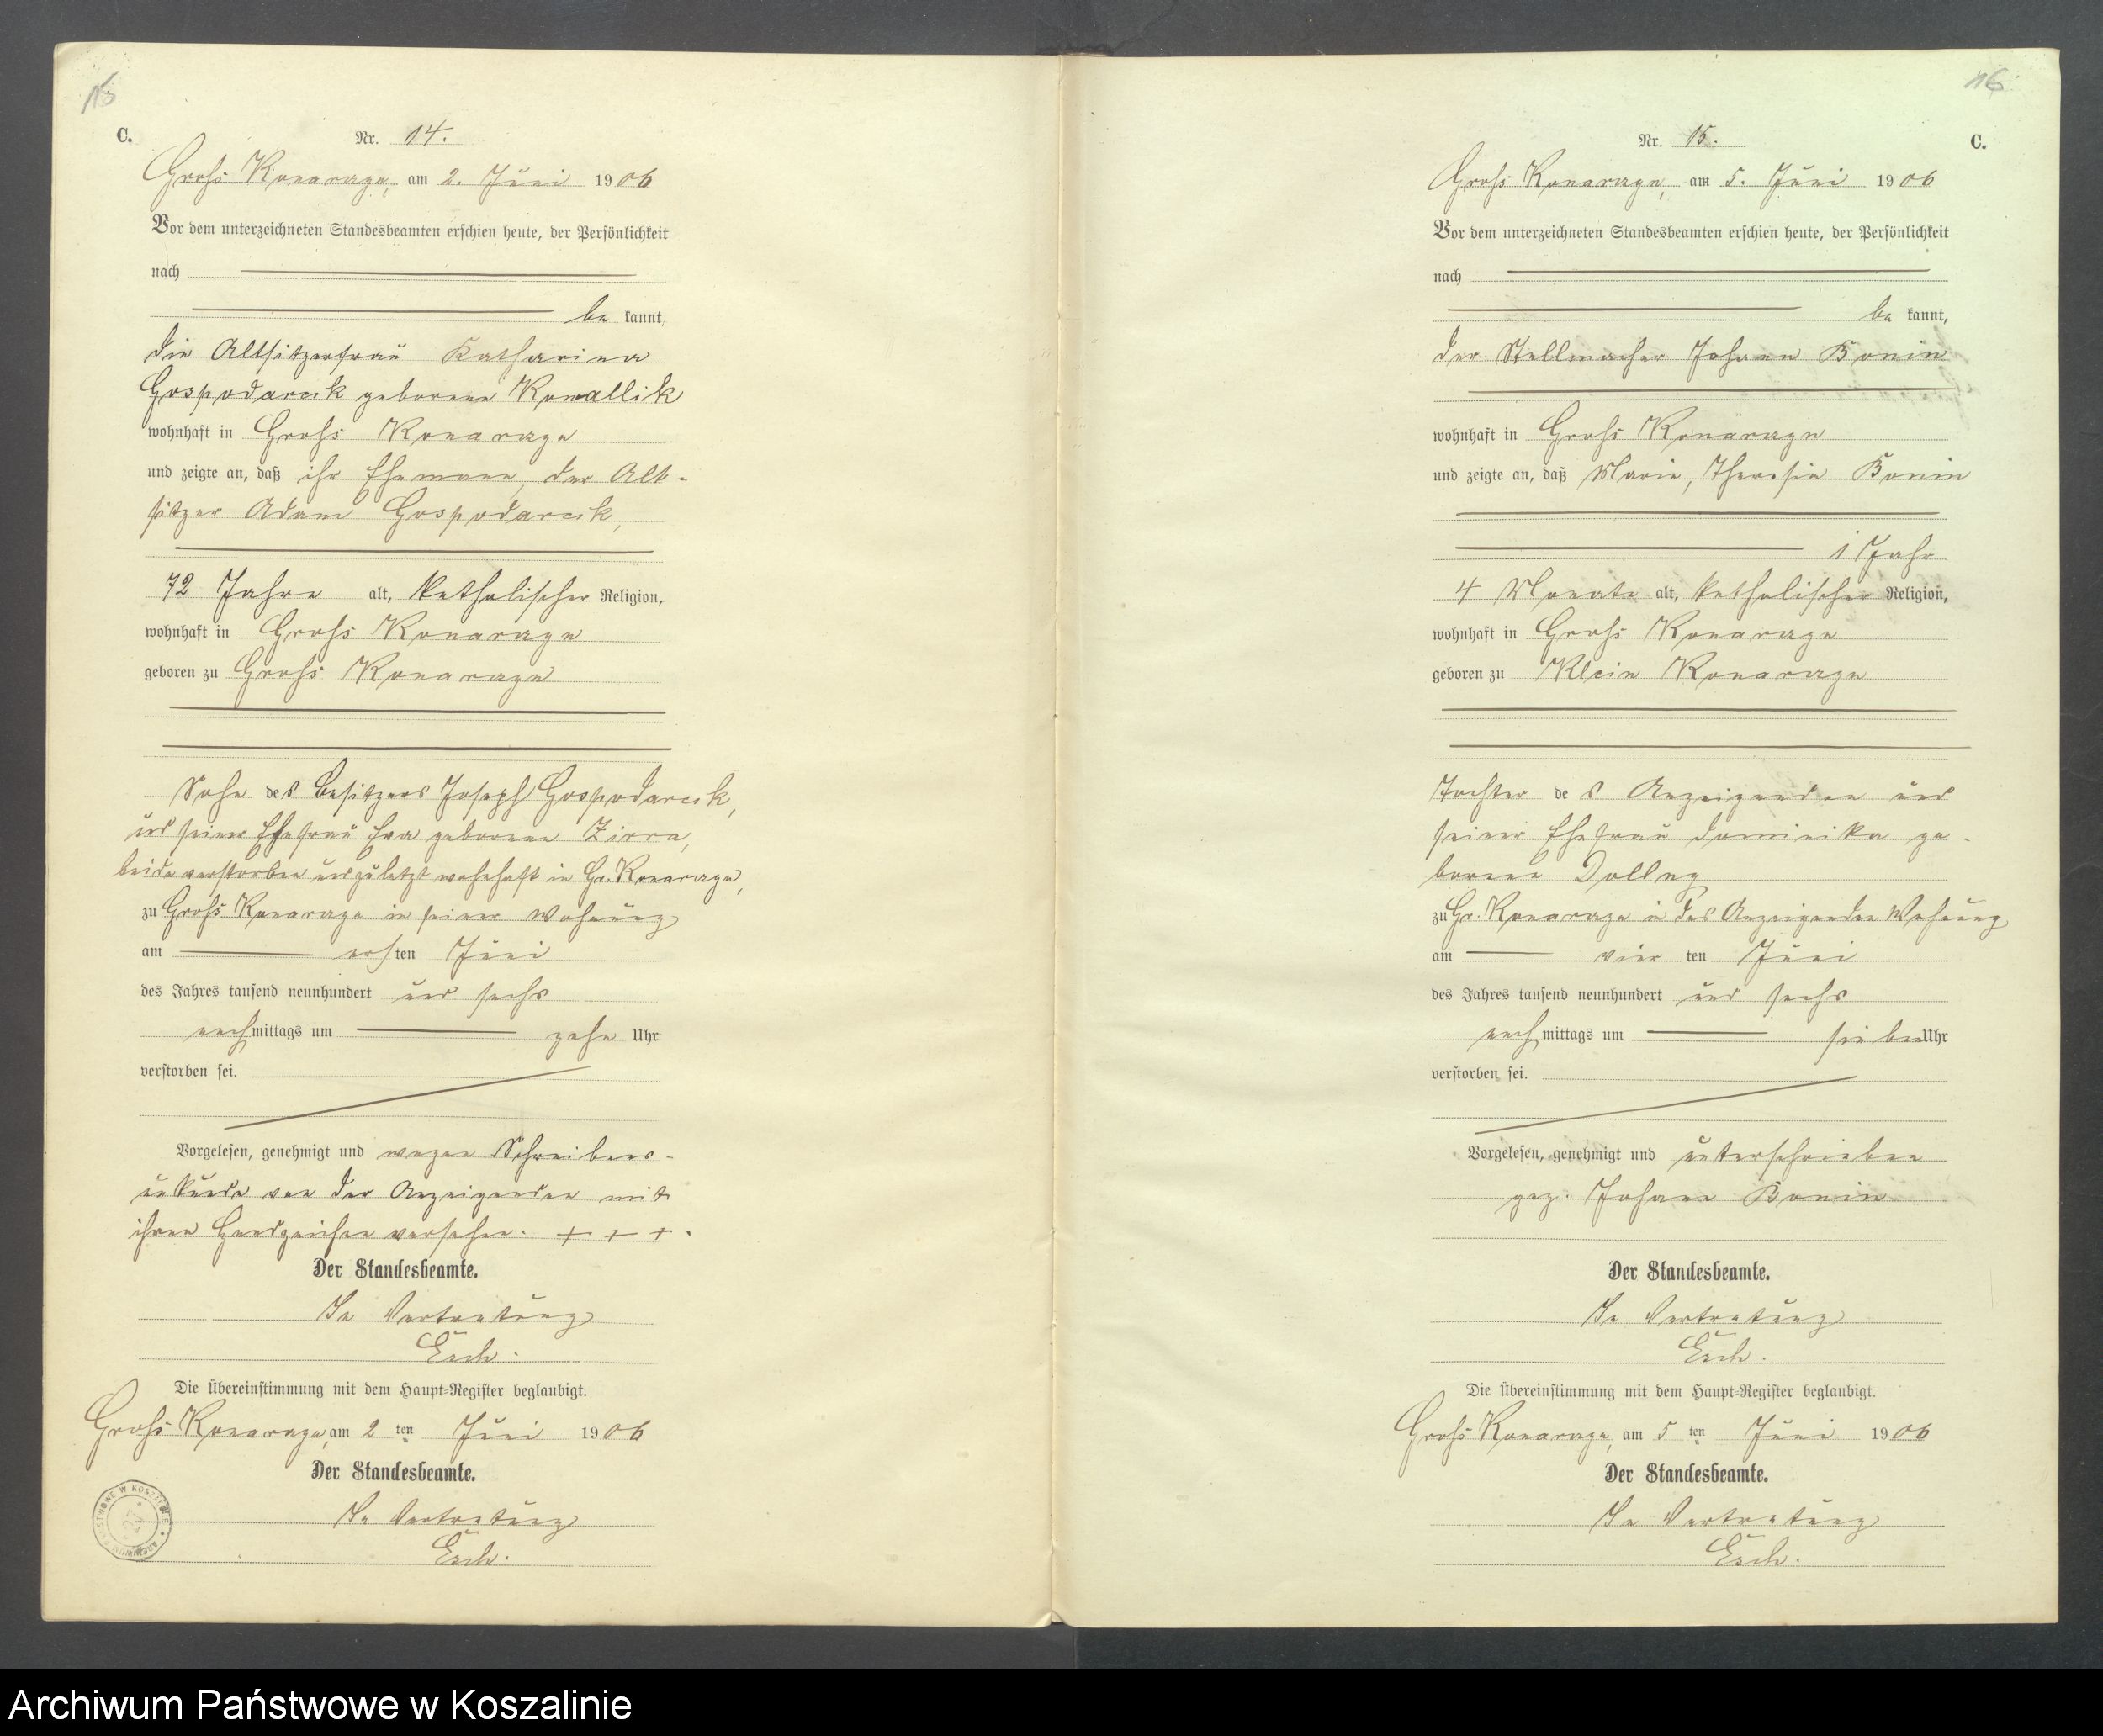 15
C.
Nr. 14.
Groß Konarzyn, am 2. Juni 1906
Vor dem unterzeichneten Standesbeamten erschien heute, der Persönlichkeit
nach
be kannt,
die Altsitzerfrau Katharina
Gospodarek geborene Kowallik
wohnhaft in Groß Konarzyn
und zeigte an, daß ihr Ehemann, der Alt-
sitzer Adam Gospodarek,
72 Jahre alt, katholischer Religion,
wohnhaft in Groß Konarzyn
geboren zu Groß Konarzyn
Sohn des Besitzers Joseph Gospodarek,
und seiner Ehefrau Eva geborene Zirra,
beide verstorben und zuletzt wohnhaft in Gr. Konarzyn,
zu Groß Konarzyn in seiner Wohnung
am ersten Juni
des Jahres tausend neunhundert und sechs
nachmittags um zehn Uhr
verstorben sei.
Vorgelesen, genehmigt und wegen Schreibens-
unkunde von der Anzeigenden mit
ihren Handzeichen versehen. + + +.
Der Standesbeamte.
In Vertretung
Esch.
Die Übereinstimmung mit dem Haupt-Register beglaubigt.
Groß Konarzyn, am 2 ten Juni 1906
Der Standesbeamte.
In Vertretung
Esch.
ARCHIWUM PAŃSTWOWE W KOSZALINIE
16
Nr. 15.
C.
Groß Konarzyn, am 5. Juni 1906
Vor dem unterzeichneten Standesbeamten erschien heute, der Persönlichkeit
nach
be kannt,
der Stellmacher Johann Bonin
wohnhaft in Groß Konarzyn
und zeigte an, daß Marie, Theresia Bonin
1 Jahr
4 Monate alt, katholischer Religion,
wohnhaft in Groß Konarzyn
geboren zu Klein Konarzyn
Tochter des Anzeigenden und
seiner Ehefrau Dominika ge-
borene Dolling
zu Gr. Konarzyn in des Anzeigenden Wohnung
am vier ten Juni
des Jahres tausend neunhundert und sechs
nach mittags um sieben Uhr
verstorben sei.
Vorgelesen, genehmigt und unterschrieben
gez. Johann Bonin
Der Standesbeamte.
In Vertretung
Esch.
Die Übereinstimmung mit dem Haupt-Register beglaubigt.
Groß Konarzyn, am 5 ten Juni 1906
Der Standesbeamte.
In Vertretung
Esch.
Archiwum Państwowe w Koszalinie